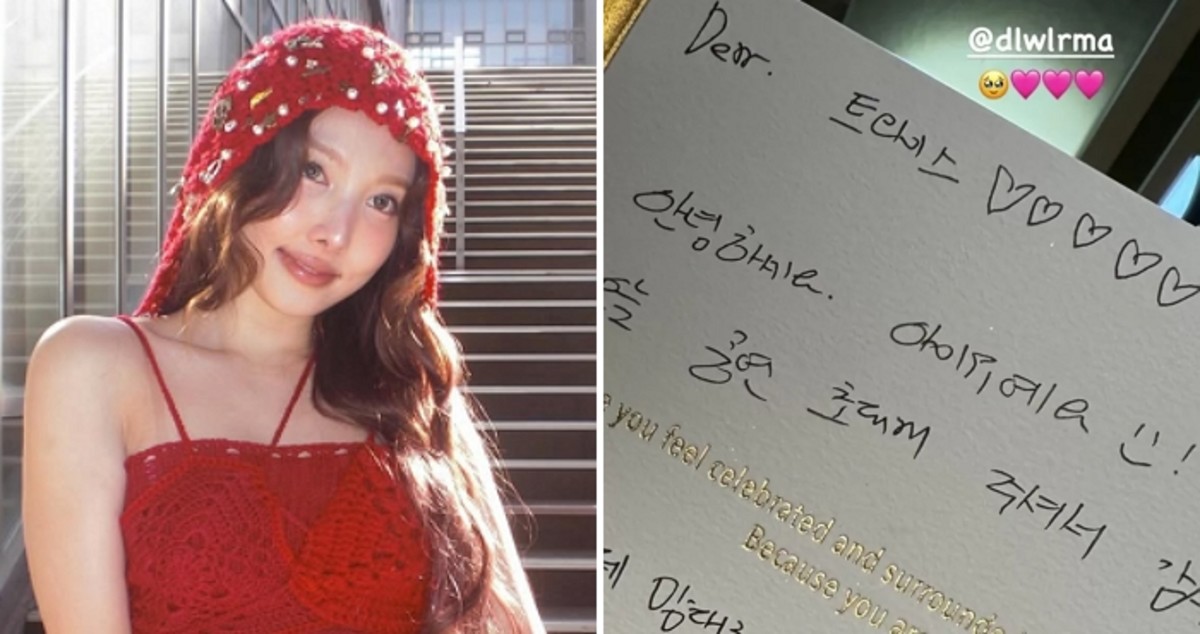 @dlwlrma
Dear.
트와이스 ♡♡♡♡♡
안녕하세요. 아이유예요 !
공연 초대해 주셔서
you feel celebrated and surround
Because you ar